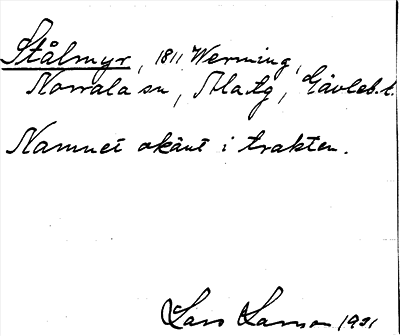 Stålmyr, 1811 Werming,
Norrala sn, Alatg, Gävleb.l.
Namnet okänt i trakten.
Lars Larsson 1931